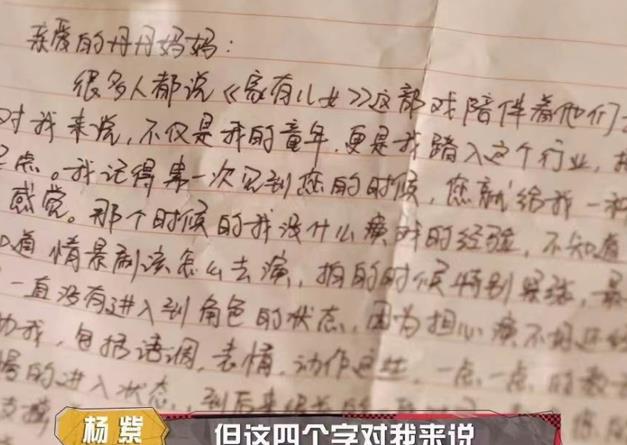 亲爱的丹丹妈妈:
很多人都说《家有儿女》这部戏陪伴着他们
对我来说,不仅是我的童年,更是我踏入这个行业,
点。我记得第一次见到您的时候,您就给我一种
感觉。那个时候的我没什么演戏的经验,不知道
道情景剧该怎么去演,拍的时候特别紧张,最
一直没有进入到角色的状态,因为担心演不好还
助我,包括语调,表情,动作这些,一点一点的教
的进入状态,到后来
支
杨紫 但这四个字对我来说